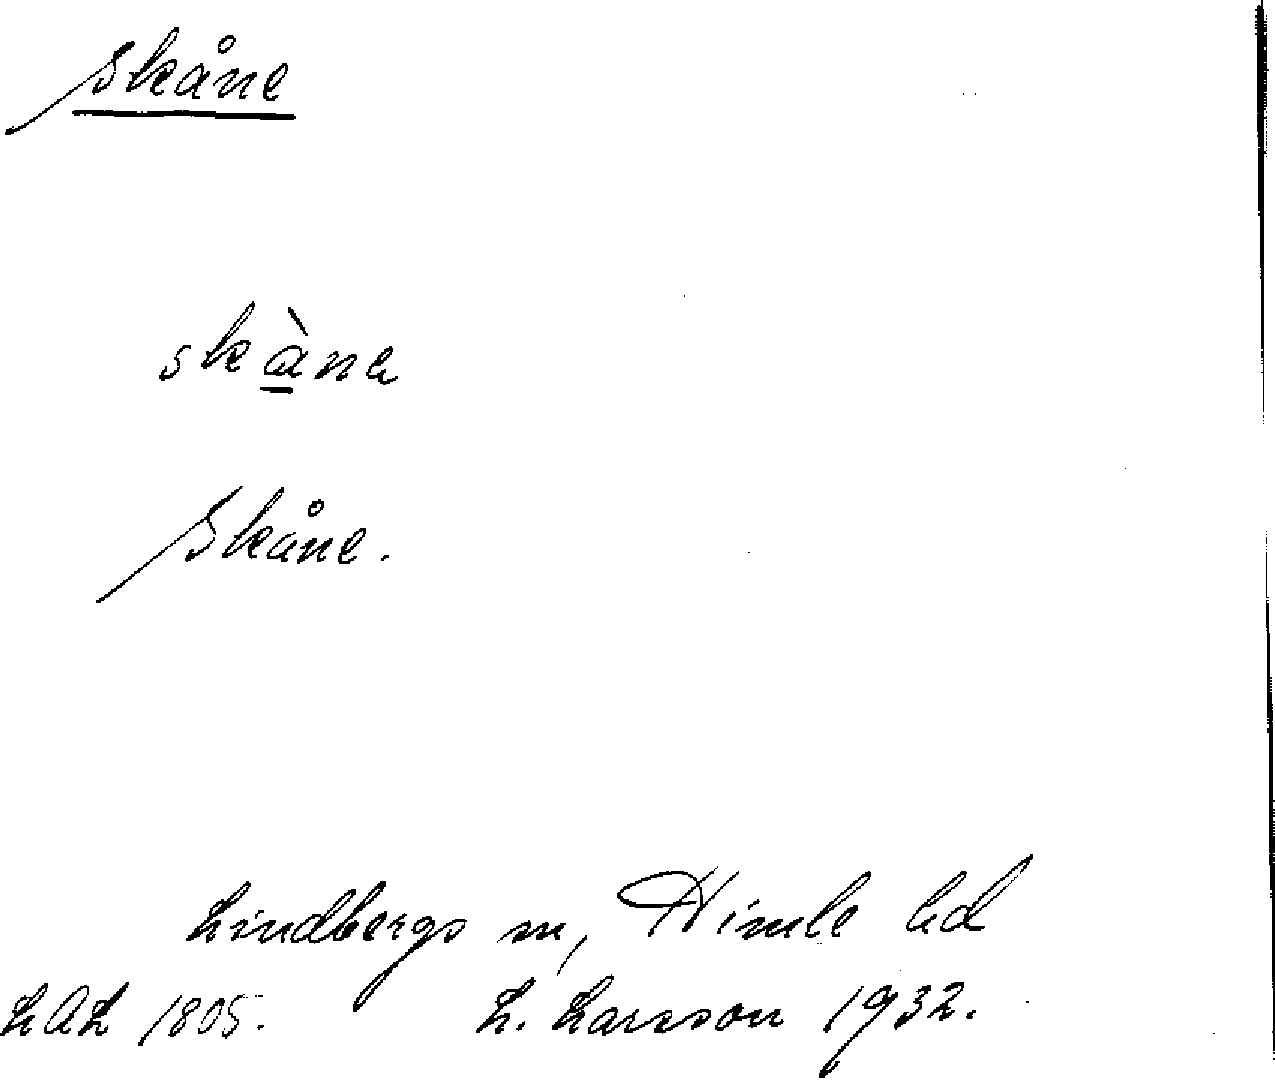 Skåne
skàne
Skåne.
Lindbergs sn, Himle hd
LAL 1805. L. Larsson 1932.